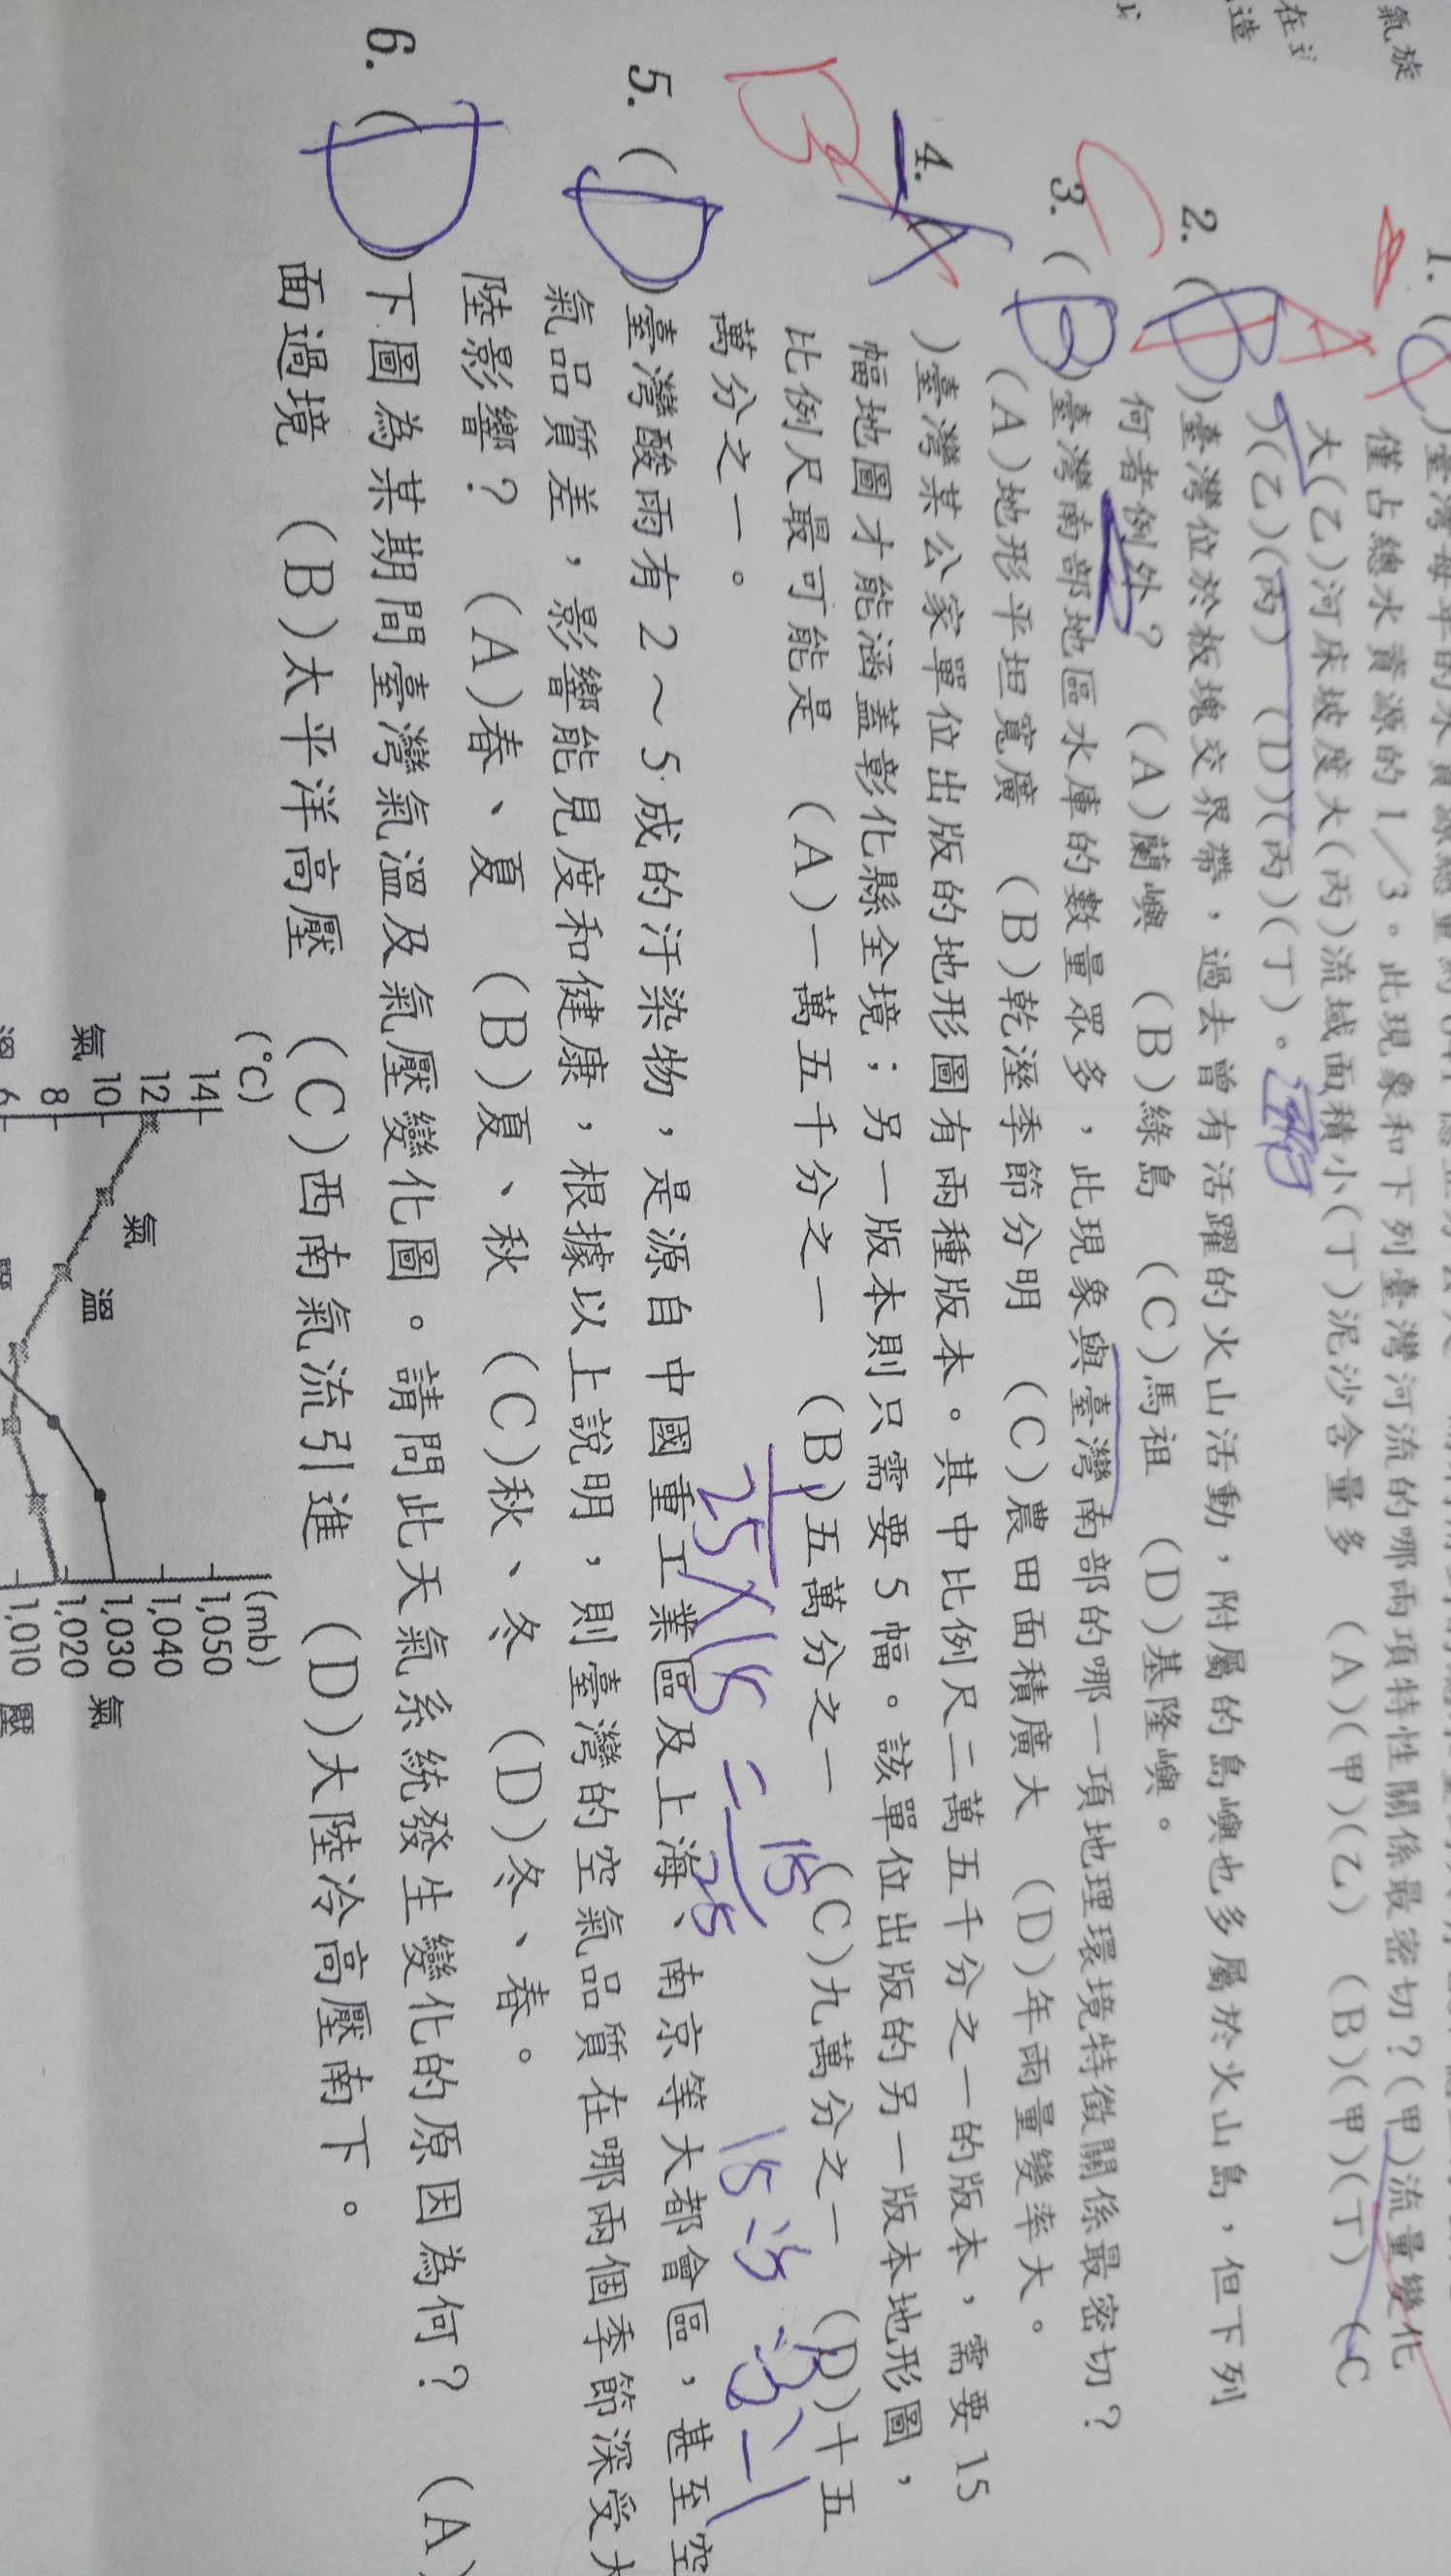 氣旋
在
造
1. (C)臺灣每年的水資源總量約
僅占總水資源的1/3。此現象和下列臺灣河流的哪兩項特性關係最密切?(甲)流量變化
大(乙)河床坡度大(丙)流域面積小(丁)泥沙含量多 (A)(甲)(乙) (B)(甲)(丁) (C
)(乙)(丙) (D)(丙)(丁)。
A
2. (B)臺灣位於板塊交界帶,過去曾有活躍的火山活動,附屬的島嶼也多屬於火山島,但下列
何者例外? (A)蘭嶼 (B)綠島 (C)馬祖 (D)基隆嶼。
C
3. (B)臺灣南部地區水庫的數量眾多,此現象與臺灣南部的哪一項地理環境特徵關係最密切?
(A)地形平坦寬廣 (B)乾溼季節分明 (C)農田面積廣大 (D)年雨量變率大。
B
4. A )臺灣某公家單位出版的地形圖有兩種版本。其中比例尺二萬五千分之一的版本,需要15
幅地圖才能涵蓋彰化縣全境;另一版本則只需要5幅。該單位出版的另一版本地形圖,
比例尺最可能是 (A)一萬五千分之一 (B)五萬分之一 (C)九萬分之一 (D)十五
萬分之一。
1/25 X 15 = 15/25
15 : 5 : 3 : 1
5. (D)臺灣酸雨有2~5成的汙染物,是源自中國重工業區及上海、南京等大都會區,甚至空
氣品質差,影響能見度和健康,根據以上說明,則臺灣的空氣品質在哪兩個季節深受大
陸影響? (A)春、夏 (B)夏、秋 (C)秋、冬 (D)冬、春。
6. (D)下圖為某期間臺灣氣溫及氣壓變化圖。請問此天氣系統發生變化的原因為何? (A)
面過境 (B)太平洋高壓 (C)西南氣流引進 (D)大陸冷高壓南下。
(℃) (mb)
14 1,050
12 1,040
10 1,030
8 1,020
6 1,010
氣溫
氣溫
氣壓
壓